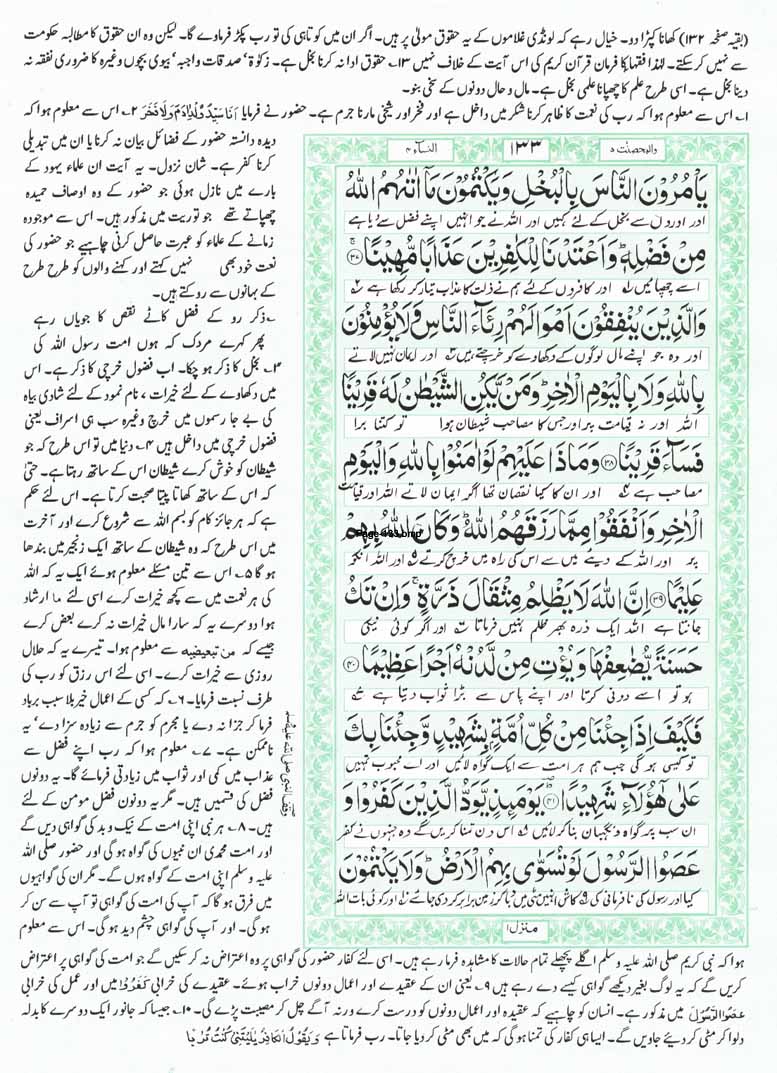 (بقیہ صفحہ ۱۳۲) کھانا کپڑا دو۔ خیال رہے کہ لونڈی غلاموں کے یہ حقوق مولیٰ پر ہیں۔ اگر ان میں کوتاہی کی تو رب پکڑ فرماوے گا۔ لیکن وہ ان حقوق کا مطالبہ حکومت
سے نہیں کر سکتے۔ لہٰذا فقہا کا فرمان قرآن کریم کی اس آیت کے خلاف نہیں ۱۳؎ حقوق ادا نہ کرنا بخل ہے۔ زکوٰۃ، صدقات واجبہ، بیوی بچوں وغیرہ کا ضروری نفقہ نہ
دینا بخل ہے۔ اسی طرح علم کا چھپانا علمی بخل ہے۔ مال و حال دونوں کے سخی بنو۔
۱؎ اس سے معلوم ہوا کہ رب کی نعمت کا ظاہر کرنا شکر میں داخل ہے اور فخر اور شیخی مارنا جرم ہے۔ حضور نے فرمایا اَنَا سَیِّدُ وُلْدِ اٰدَمَ وَلَا فَخْرَ ۲؎ اس سے معلوم ہوا کہ
دیدہ دانستہ حضور کے فضائل بیان نہ کرنا یا ان میں تبدیلی
کرنا کفر ہے۔ شان نزول۔ یہ آیت ان علماء یہود کے
بارے میں نازل ہوئی جو حضور کے وہ اوصاف حمیدہ
چھپاتے تھے جو توریت میں مذکور ہیں۔ اس سے موجودہ
زمانے کے علماء کو عبرت حاصل کرنی چاہیے جو حضور کی
نعت خود بھی نہیں کہتے اور کہنے والوں کو طرح طرح
کے بہانوں سے روکتے ہیں۔
ذکر رو کے فضل کاٹے نقص کا جویاں رہے
پھر کہے مردک کہ ہوں امت رسول اللہ کی
۳؎ بخل کا ذکر ہو چکا۔ اب فضول خرچی کا ذکر ہے۔ اس
میں دکھاوے کے لئے خیرات، نام نمود کے لئے شادی بیاہ
کی بے جا رسموں میں خرچ وغیرہ سب ہی اسراف یعنی
فضول خرچی میں داخل ہیں ۴؎ دنیا میں تو اس طرح کہ جو
شیطان کو خوش کرے شیطان اس کے ساتھ رہتا ہے۔ حتیٰ
کہ اس کے ساتھ کھاتا پیتا صحبت کرتا ہے۔ اس لئے حکم
ہے کہ ہر جائز کام کو بسم اللہ سے شروع کرے اور آخرت
میں اس طرح کہ وہ شیطان کے ساتھ ایک زنجیر میں بندھا
ہو گا ۵؎ اس سے تین مسئلے معلوم ہوئے ایک یہ کہ اللہ
کی ہر نعمت میں سے کچھ خیرات کرے اسی لئے ما ارشاد
ہوا دوسرے یہ کہ سارا مال خیرات نہ کرے بعض کرے
جیسے کہ من تبعیضیہ سے معلوم ہوا۔ تیسرے یہ کہ حلال
روزی سے خیرات کرے۔ اسی لئے اس رزق کو رب کی
طرف نسبت فرمایا۔ ۶؎ کہ کسی کے اعمال خیر بلا سبب برباد
فرما کر جزا نہ دے یا مجرم کو جرم سے زیادہ سزا دے، یہ
ناممکن ہے۔ ۷؎ معلوم ہوا کہ رب اپنے فضل سے
عذاب میں کمی اور ثواب میں زیادتی فرمائے گا۔ یہ دونوں
فضل کی قسمیں ہیں۔ مگر یہ دونوں فضل مومن کے لئے
ہیں۔ ۸؎ ہر نبی اپنی امت کے نیک و بد کی گواہی دیں گے
اور امت محمدی ان نبیوں کی گواہ ہو گی اور حضور صلی اللہ
علیہ وسلم اپنی امت کے گواہ ہوں گے۔ مگر ان کی گواہیوں
میں فرق ہو گا کہ آپ کی امت کی گواہی تو آپ سے سن کر
ہو گی۔ اور آپ کی گواہی چشم دید ہو گی۔ اس سے معلوم
والمحصنٰت ۵
۱۳۳
النسآء ۴
یَاْمُرُوْنَ النَّاسَ بِالْبُخْلِ وَیَكْتُمُوْنَ مَاۤ اٰتٰىهُمُ اللّٰهُ
اور اوروں سے بخل کے لئے کہیں اور اللہ نے جو انہیں اپنے فضل سے دیا ہے
مِنْ فَضْلِهٖؕ وَاَعْتَدْنَا لِلْكٰفِرِیْنَ عَذَابًا مُّهِیْنًاۚ۝۳۷
اسے چھپائیں اور کافروں کے لئے ہم نے ذلت کا عذاب تیار کر رکھا ہے
وَالَّذِیْنَ یُنْفِقُوْنَ اَمْوَالَهُمْ رِئَآءَ النَّاسِ وَلَا یُؤْمِنُوْنَ
اور وہ جو اپنے مال لوگوں کے دکھاوے کو خرچتے ہیں اور ایمان نہیں لاتے
بِاللّٰهِ وَلَا بِالْیَوْمِ الْاٰخِرِؕ وَمَنْ یَّكُنِ الشَّیْطٰنُ لَهٗ قَرِیْنًا
اللہ اور نہ قیامت پر اور جس کا مصاحب شیطان ہوا تو کتنا برا
فَسَآءَ قَرِیْنًا۝۳۸ وَمَاذَا عَلَیْهِمْ لَوْ اٰمَنُوْا بِاللّٰهِ وَالْیَوْمِ
مصاحب ہے اور ان کا کیا نقصان تھا اگر ایمان لاتے اللہ اور قیامت
الْاٰخِرِ وَاَنْفَقُوْا مِمَّا رَزَقَهُمُ اللّٰهُؕ وَكَانَ اللّٰهُ بِهِمْ
Page-133.bmp
پر اور اللہ کے دیئے میں سے اس کی راہ میں خرچ کرتے اور اللہ ان کو
عَلِیْمًا۝۳۹ اِنَّ اللّٰهَ لَا یَظْلِمُ مِثْقَالَ ذَرَّةٍۚ وَاِنْ تَكُ
جانتا ہے اللہ ایک ذرہ بھر ظلم نہیں فرماتا اور اگر کوئی نیکی
حَسَنَةً یُّضٰعِفْهَا وَیُؤْتِ مِنْ لَّدُنْهُ اَجْرًا عَظِیْمًا۝۴۰
ہو تو اسے دونی کرتا اور اپنے پاس سے بڑا ثواب دیتا ہے
فَكَیْفَ اِذَا جِئْنَا مِنْ كُلِّ اُمَّةٍۭ بِشَهِیْدٍ وَّجِئْنَا بِكَ
تو کیسی ہو گی جب ہم ہر امت سے ایک گواہ لائیں اور اے محبوب تمہیں
عَلٰى هٰۤؤُلَآءِ شَهِیْدًا۝۴۱ یَوْمَىِٕذٍ یَّوَدُّ الَّذِیْنَ كَفَرُوْا وَ
ان سب پر گواہ و نگہبان بنا کر لائیں اس دن تمنا کریں گے وہ جنہوں نے کفر
عَصَوُا الرَّسُوْلَ لَوْ تُسَوّٰى بِهِمُ الْاَرْضُؕ وَلَا یَكْتُمُوْنَ
کیا اور رسول کی نافرمانی کی کاش انہیں مٹی میں دبا کر زمین برابر کر دی جائے اور کوئی بات اللہ
منزل ۱
وقف النبی صلی اللہ علیہ وسلم
ہوا کہ نبی کریم صلی اللہ علیہ وسلم اگلے پچھلے تمام حالات کا مشاہدہ فرما رہے ہیں۔ اسی لئے کفار حضور کی گواہی پر وہ اعتراض نہ کر سکیں گے جو امت کی گواہی پر اعتراض
کریں گے کہ یہ لوگ بغیر دیکھے گواہی کیسے دے رہے ہیں ۹؎ یعنی ان کے عقیدے اور اعمال دونوں خراب ہوئے۔ عقیدے کی خرابی کَفَرُوْا میں اور عمل کی خرابی
عَصَوُا الرَّسُوْلَ میں مذکور ہے۔ انسان کو چاہیے کہ عقیدہ اور اعمال دونوں کو درست کرے ورنہ آگے چل کر مصیبت پڑے گی۔ ۱۰؎ جیسا کہ جانور ایک دوسرے کا بدلہ
دلوا کر مٹی کر دیئے جاویں گے۔ ایسا ہی کفار کی تمنا ہو گی کہ میں بھی مٹی کر دیا جاتا۔ رب فرماتا ہے وَیَقُوْلُ الْكَافِرُ یٰلَیْتَنِیْ كُنْتُ تُرٰبًا